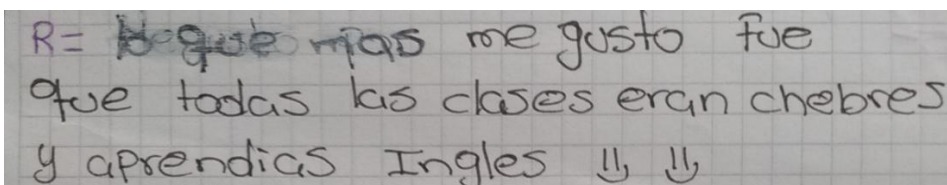 R= lo que mas me gusto fue
que todas las clases eran chebres
y aprendias Ingles =) =)